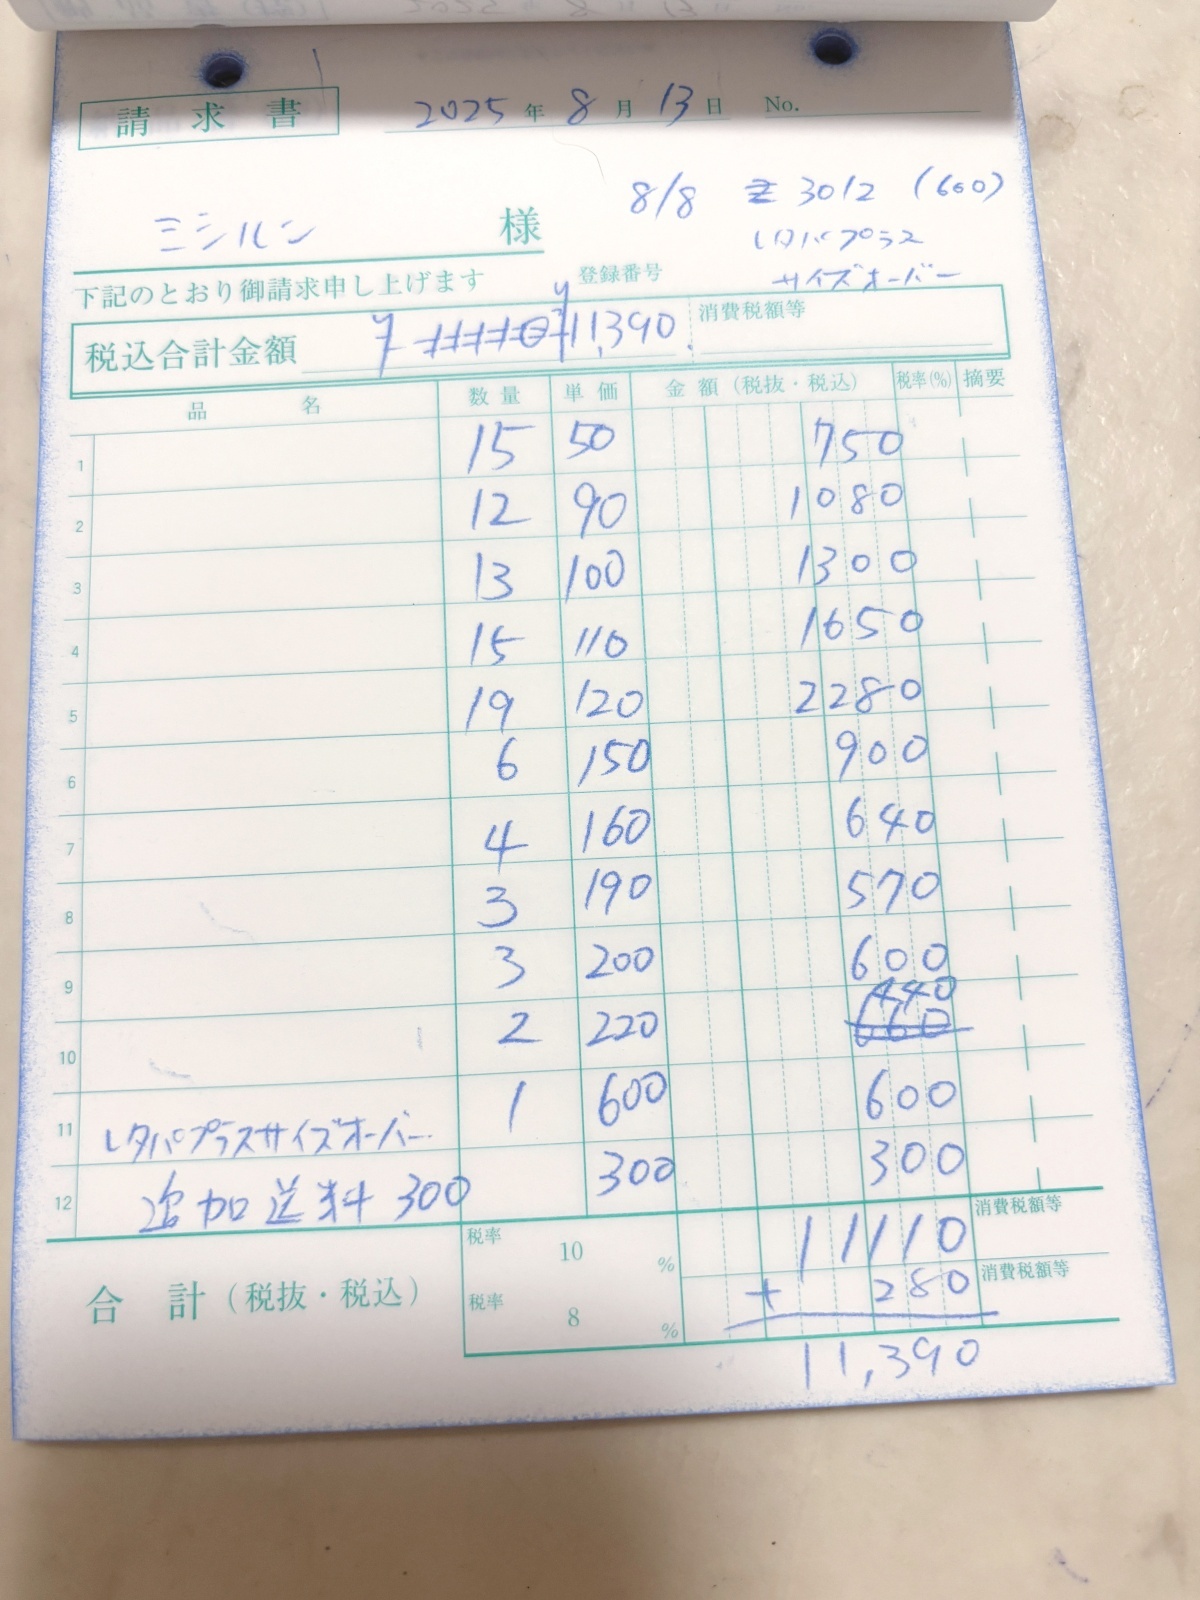 請求書 2025年 8月 13日 No.
8/8 3012 (600)
ミシルン 様
レタパプラス
サイズオーバー
下記のとおり御請求申し上げます 登録番号
税込合計金額 ¥11,390 消費税額等
品名 数量 単価 金額(税抜・税込) 税率(%) 摘要
1 15 50 750
2 12 90 1080
3 13 100 1300
4 15 110 1650
5 19 120 2280
6 6 150 900
7 4 160 640
8 3 190 570
9 3 200 600
440
10 2 220 660
11 レタパプラスサイズオーバー 1 600 600
12 追加送料 300 300 300
合計(税抜・税込) 税率 10 % 11110 消費税額等
税率 8 % + 280 消費税額等
11,390